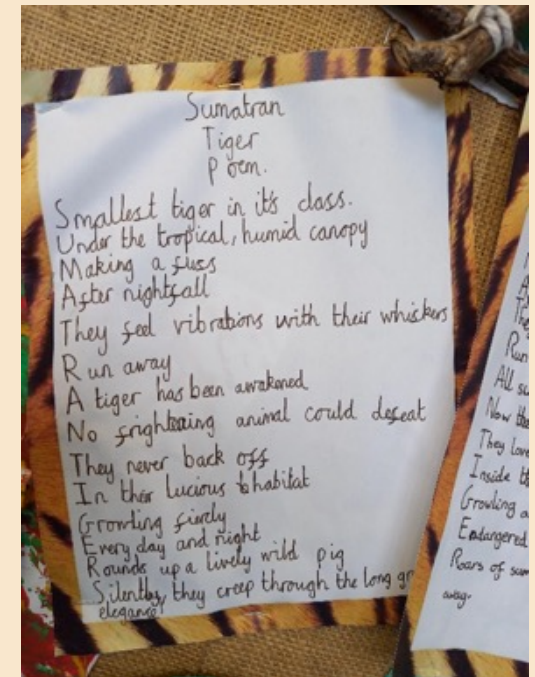 Sumatran
Tiger
Poem.
Smallest tiger in it's class.
Under the tropical, humid canopy
Making a fuss
After nightfall
They feel vibrations with their whiskers
Run away
A tiger has been awakened
No frightening animal could defeat
They never back off
In their lucious habitat
Growling fiercly
Every day and night
Rounds up a lively wild pig
Silently, they creep through the long gr
elegance
Run
All su
Now the
They love
Inside th
Growling a
Endangered
Roars of sum
away.